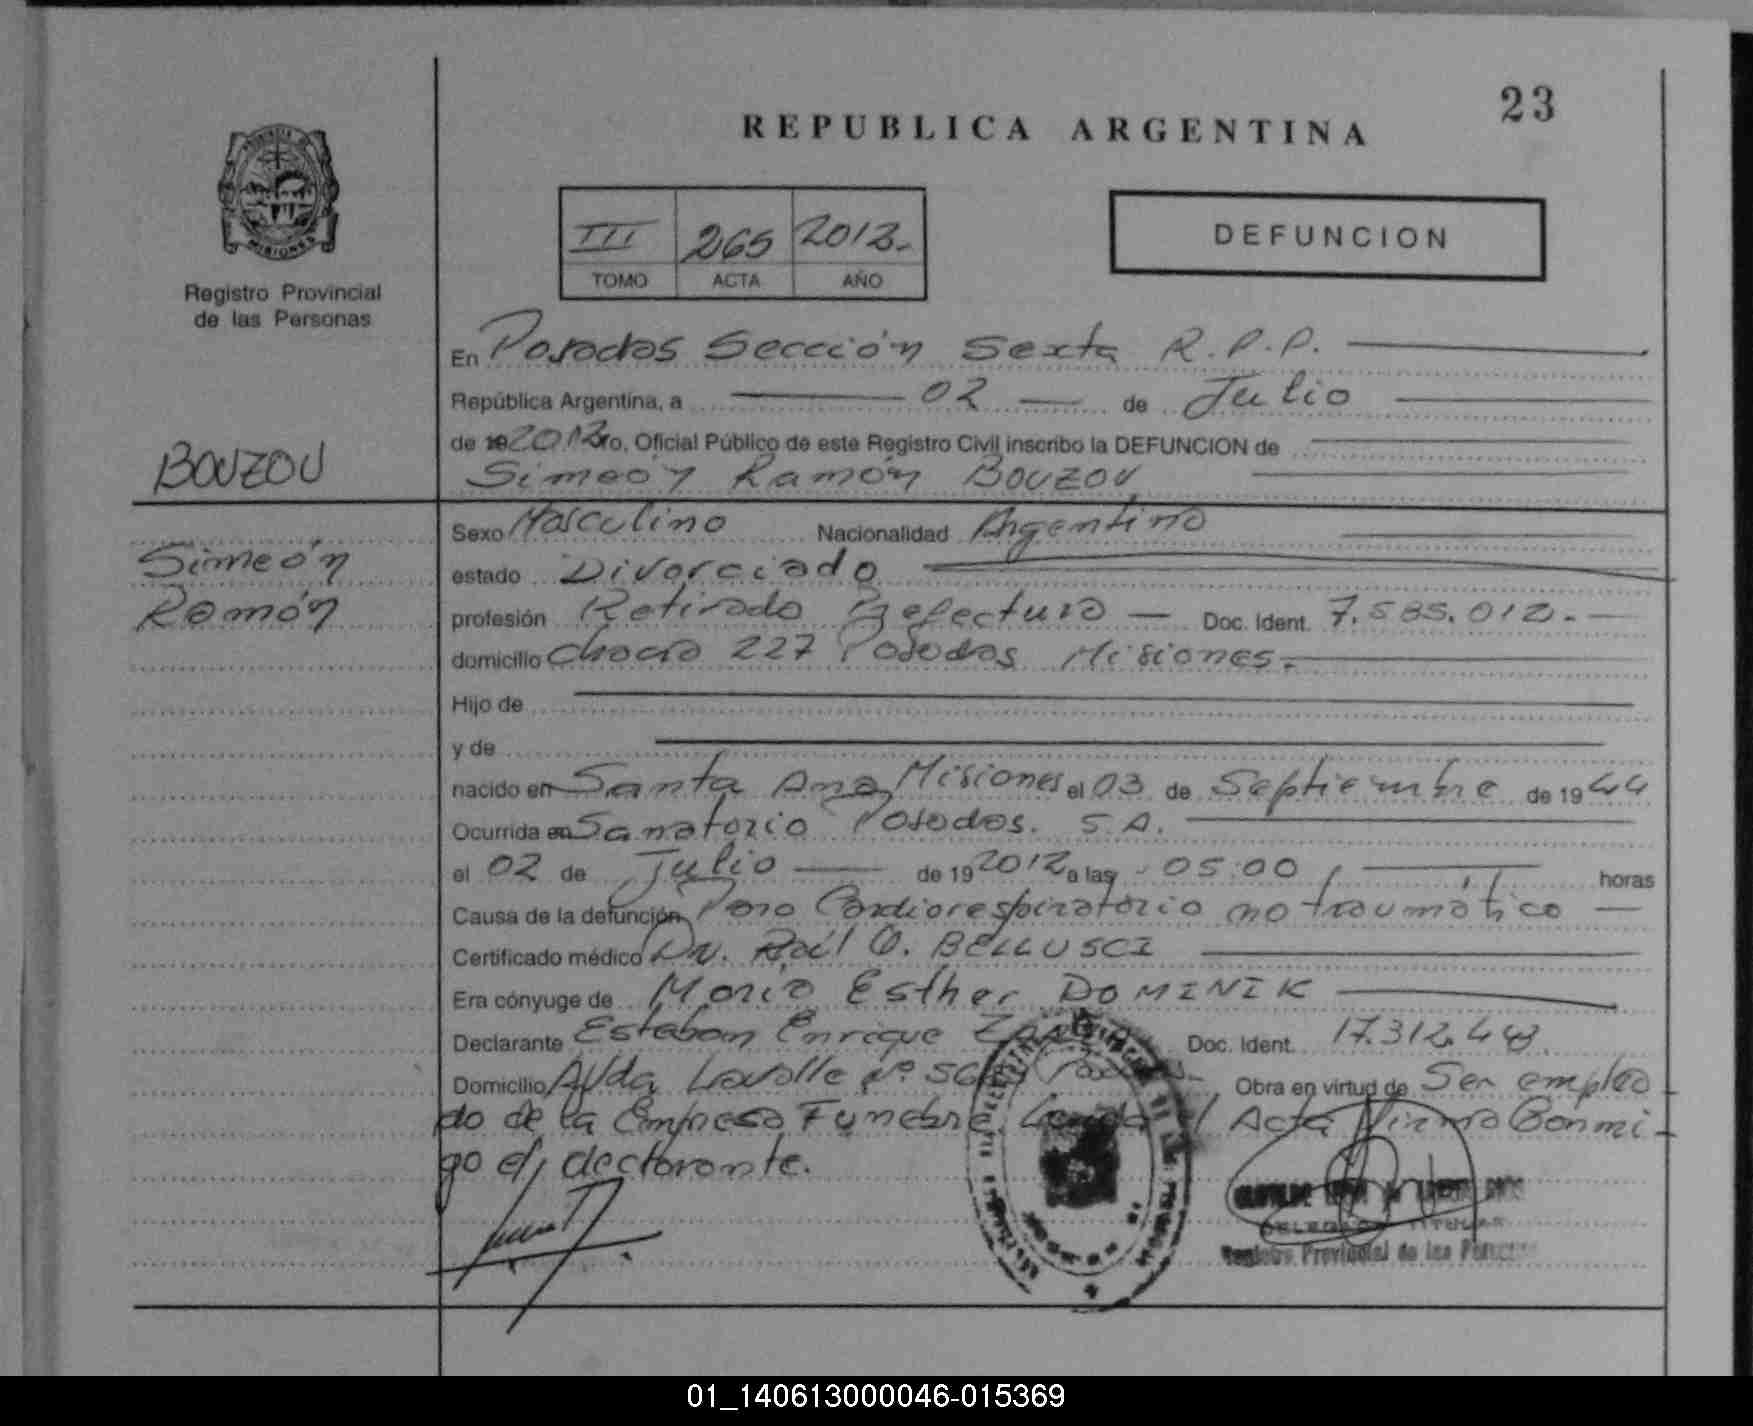 23
REPUBLICA ARGENTINA
III 265 2012.-
TOMO ACTA AÑO
DEFUNCION
Registro Provincial
de las Personas
En Posadas Sección Sexta R.P.P.
República Argentina, a 02 de Julio
de 19 2012 ro, Oficial Público de este Registro Civil inscribo la DEFUNCION de
BOUZOU
Simeón Ramón BOUZOU
Simeón
Ramón
Sexo Masculino Nacionalidad Argentino
estado Divorciado
profesión Retirado Prefectura — Doc. Ident. 7.585.012.-
domicilio Chaco 227 Posadas Misiones.-
Hijo de
y de
nacido en Santa Ana Misiones el 03 de Septiembre de 1944
Ocurrida en Sanatorio Posadas. S.A.
el 02 de Julio de 19 2012 a las 05:00 horas
Causa de la defunción Paro Cardiorespiratorio no traumático
Certificado médico Dr. Raúl O. BELLUSCI
Era cónyuge de María Esther DOMINIK
Declarante Esteban Enrique Doc. Ident. 17.312.448.
Domicilio Avda Lavalle Nº Obra en virtud de Ser emplea
do de la Empresa Funebre Acta Firma Conmi-
go el declarante.
DELEGADA TITULAR
Registro Provincial de las Personas
01_140613000046-015369